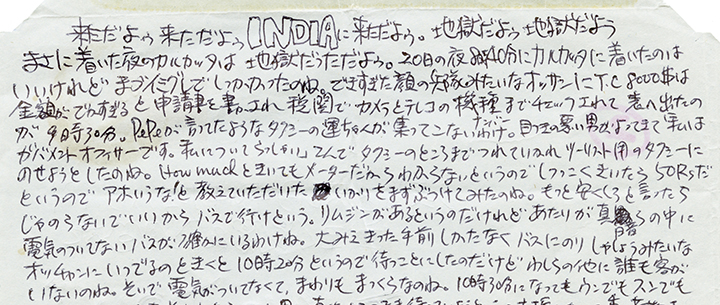 来ただよぅ 来ただだよぅ INDIAに来ただよぅ。地獄だよぅ地獄だよう
まさに着いた夜のカルカッタは地獄だっただよぅ。20日の夜8時40分にカルカッタに着いたのは
いいけれどまずイミグレでしっかかったのね。できすぎた顔の みたいなオッサンにT.C 8000$は
金額がでかすぎると申請書を書かされ税関でカメラとテレコの機種までチェックされて表へ出たの
が9時30分。PePeが言ってたようなタクシーの運ちゃんが集ってこないわけ。目つきの悪い男がよってきて「私は
ガバメントオフィサーです。私についてらっしゃい」てんでタクシーのところまでつれていかれツーリスト用のタクシーに
のせようとしたのね。How muchときいてもメーターだからわからないというのでしつこくきいたら50RSだ
というのでアホいうな!と教えていただいたいかりをまずぶつけてみたのね。もっと安くしろと言ったら
じゃのらないでいいからバスで行けという。リムジンがあるというのだけれどあたりが真暗らの中に
電気のついてないバスが2台いるわけね。大みえきった手前しかたなくバスにのりしゃしょうみたいな
オッチャンにいつでるのときくと10時20分というので待つことにしたのだけどわしらの他に誰も客が
いないのね。そいで電気がついてなくて、まわりもまっくらなのね。10時30分になってもウンでもスンでも